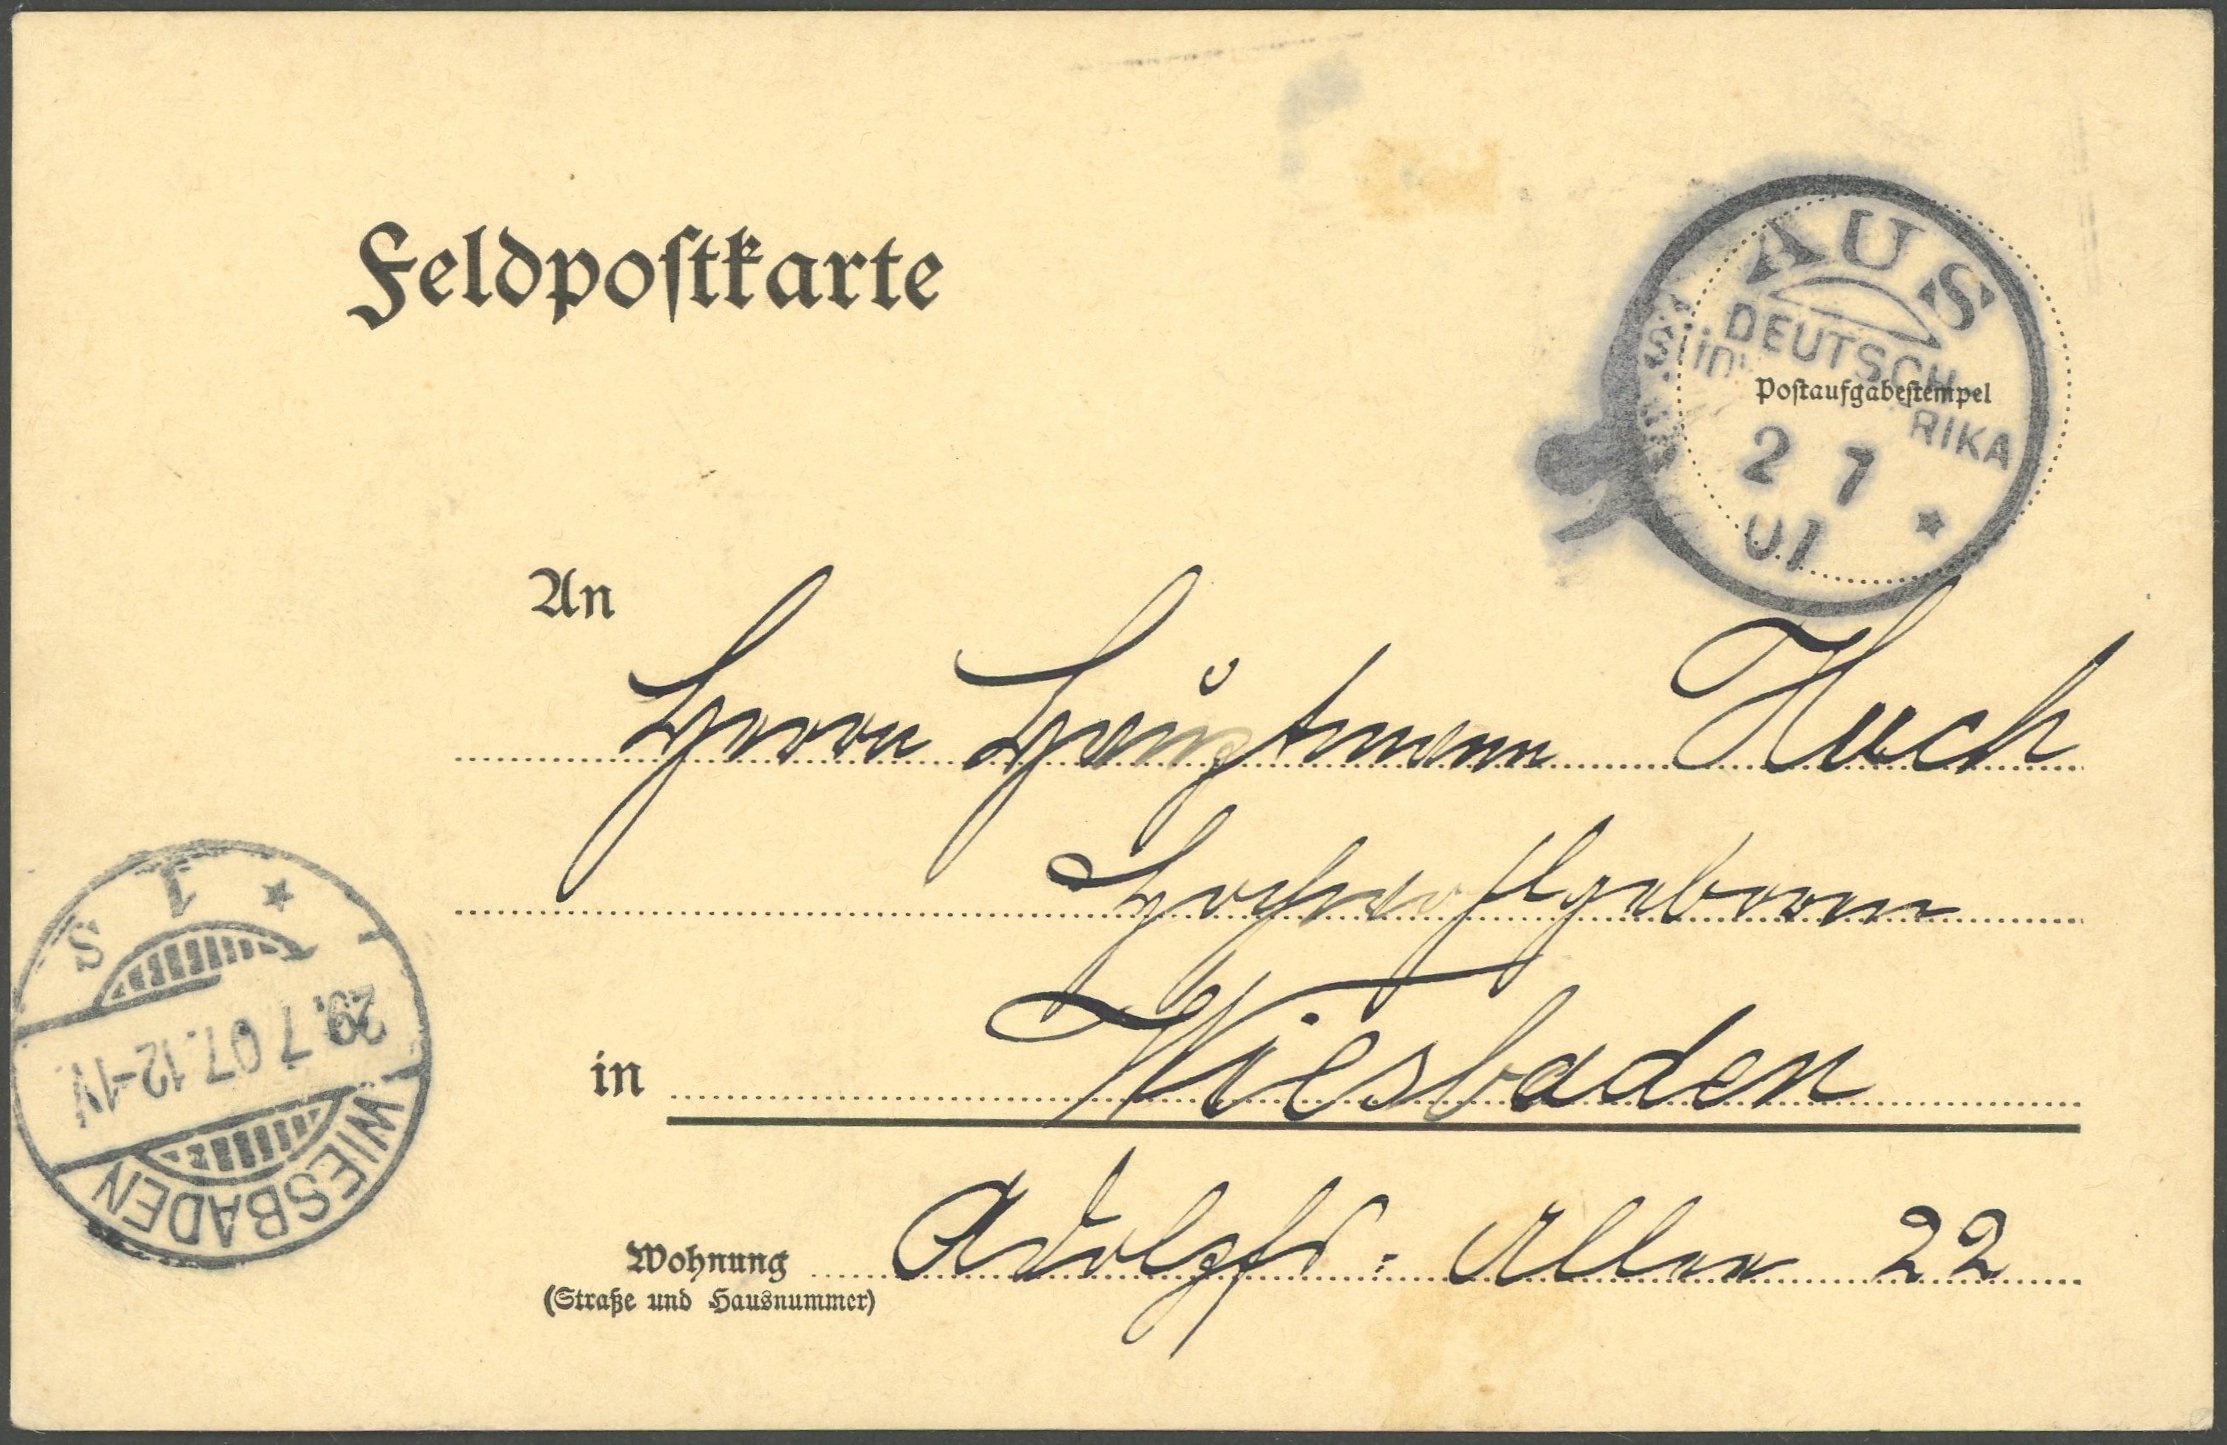 Feldpostkarte
AUS
DEUTSCH
RIKA
Postaufgabestempel
2 7
07
An
Herrn Hauptmann Huch
Hochwohlgeboren
in Wiesbaden
Wohnung Adolfs-Allee 22
(Straße und Hausnummer)
WIESBADEN
29.7 07.12-1N.
* 1 S